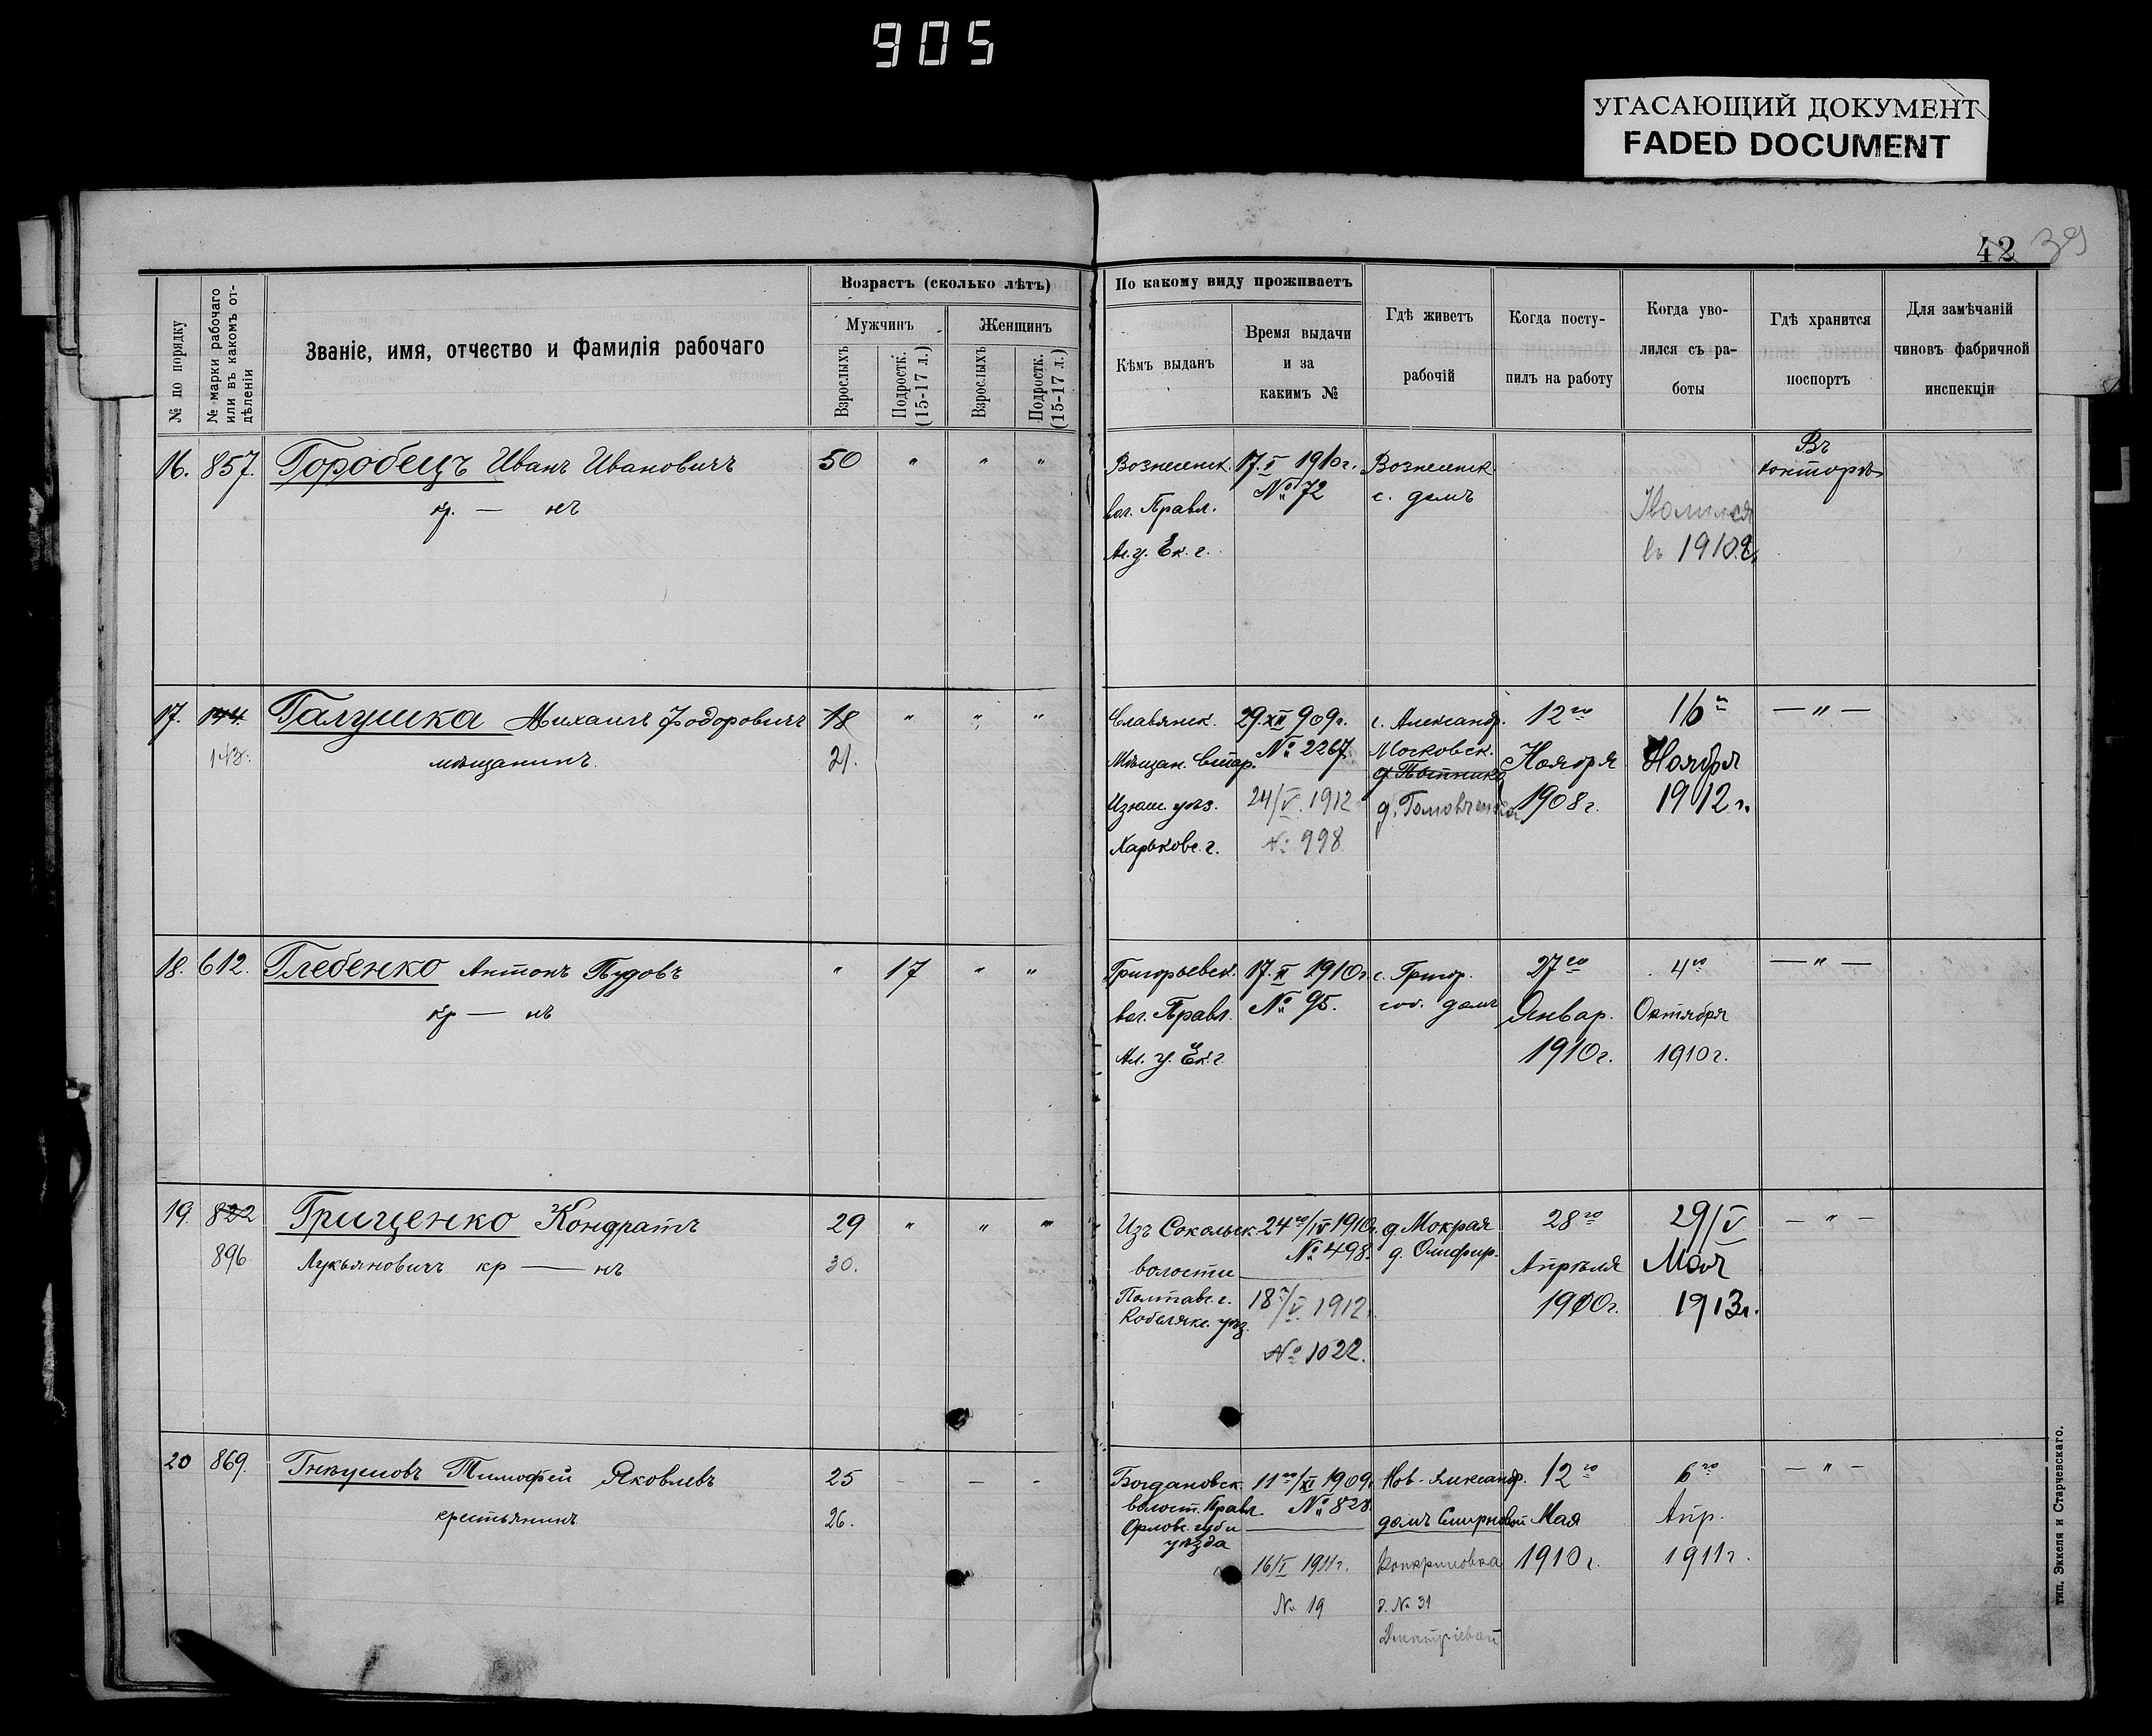 905
УГАСАЮЩИЙ ДОКУМЕНТ
FADED DOCUMENT
42 39
№ по порядку
№ марки рабочаго или въ какомъ от-дѣленіи
Званіе, имя, отчество и фамилія рабочаго
Возрастъ (сколько лѣтъ)
Мужчинъ
Женщинъ
Взрослыхъ
Подростк. (15-17 л.)
Взрослыхъ
Подростк. (15-17 л.)
По какому виду проживаетъ
Кѣмъ выданъ
Время выдачи
и за
какимъ №
Гдѣ живетъ
рабочій
Когда посту-
пилъ на работу
Когда уво-
лился съ ра-
боты
Гдѣ хранится
поспортъ
Для замѣчаній
чиновъ фабричной
инспекціи
16. 857. Горобецъ Иванъ Ивановичъ 50 " " "
кр. — нъ
Вознесенск.
вол. Правл.
Ал. у. Ек. г.
17. V 1910 г.
№ 72
Вознесенск
с. домъ
Уволился
въ 1910 г.
Въ
конторѣ
17. 144. Галушка Михаилъ Фодоровичъ 18 " " "
143. мѣщанинъ. 21.
Славянск.
Мѣщан. Стар.
Изюм. уѣз.
Харьковс. г.
29. XII 909 г.
№ 2267
24/V. 1912
№ 998
с. Александр.
Московск.
д.
12го
Ноября
1908 г.
16го
Ноября
1912 г.
— " —
18. 612. Глебенко Антонъ Пудовъ " 17 " "
кр — нъ
Григорьевск.
вол. Правл.
Ал. у. Ек. г.
17. II 1910 г.
№ 95.
с. Григор.
соб. домъ
27го
Январ.
1910 г.
4го
Октября
1910 г.
— " —
19. 822 Грищенко Кондратъ 29 " " "
896. Лукьяновичъ кр — нъ 30.
Изъ Сокольск.
волости
Полтавс. г.
Кобелякс. уѣз.
24го/IV 1910 г.
№ 498.
18го/V. 1912.
№ 1022.
д. Мокрая
д. Олифир.
28го
Апрѣля
1910 г.
29/V
Мая
1913 г.
— " —
20 869. Тимофей Яковлевъ 25 - — -
крестьянинъ 26.
Богдановск.
волост. Правл
Орловс. губи
уѣзда
11го/XI 1909.
№ 828
16/I 1911 г.
№ 19
Нов-Александр.
домъ Смирновой
д. № 31
Дмитріевой
12го
Мая
1910 г.
6го
Апр.
1911 г.
— " —
тип. Эккеля и Старчевскаго.